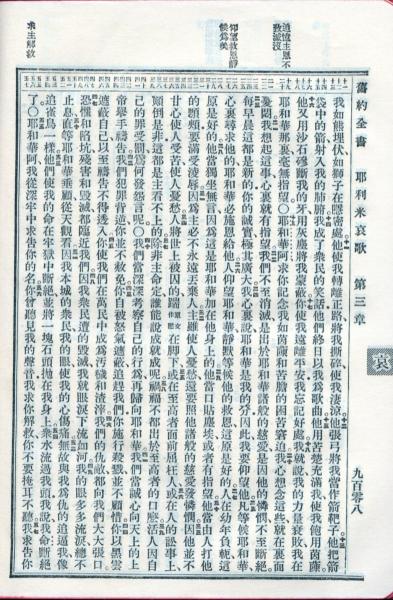 舊約全書 耶利米哀歌 第三章 九百零八
哀
追憶主恩不
致滅沒
仰望救恩靜
候爲美
求主解救
我如熊埋伏如獅子在隱祕處他使我轉離正路將我撕碎使我淒涼他張弓將我當作箭靶子他把箭
袋中的箭射入我的肺腑我成了衆民的笑話他們終日以我爲歌曲他用苦楚充滿我使我飽用茵蔯
他又用沙石磣斷我的牙用灰塵將我蒙蔽你使我遠離平安我忘記好處我就說我的力量衰敗我在
耶和華那裏毫無指望〇耶和華阿求你記念我如茵蔯和苦膽的困苦窘迫我心想念這些就在裏面
憂悶我想起這事心裏就有指望我們不至消滅是出於耶和華諸般的慈愛是因他的憐憫不至斷絕
每早晨這都是新的你的誠實極其廣大我心裏說耶和華是我的分因此我要仰望他凡等候耶和華
心裏尋求他的耶和華必施恩給他人仰望耶和華靜默等候他的救恩這原是好的人在幼年負軛這
原是好的他當獨坐無言因爲這是耶和華加在他身上的他當口貼塵埃或者有指望他當由人打他
的腮頰要滿受凌辱因爲主必不永遠丟棄人主雖使人憂愁還要照他諸般的慈愛發憐憫因他並不
甘心使人受苦使人憂愁人將世上被囚的踹原文作壓在腳下或在至高者面前屈枉人或在人的訟事上
顛倒是非這都是主看不上的除非主命定誰能說成就成呢禍福不都出於至高者的口麼活人因自
己的罪受罰爲何發怨言呢〇我們當深深考察自己的行爲再歸向耶和華我們當誠心向天上的上
帝舉手禱告我們犯罪背逆你並不赦免你自被怒氣遮蔽追趕我們你施行殺戮並不顧惜你以黑雲
遮蔽自己以至禱告不得透入你使我們在萬民中成爲汚穢和渣滓我們的仇敵都向我們大大張口
恐懼和陷坑殘害和毀滅都臨近我們因我衆民遭的毀滅我就眼淚下流如河我的眼多多流淚總不
止息直等耶和華垂顧從天觀看因我本城的衆民我的眼使我的心傷痛無故與我爲仇的追逼我像
追雀鳥一樣他們使我的命在牢獄中斷絕並將一塊石頭拋在我身上衆水流過我頭我說我命斷絕
了〇耶和華阿我從深牢中求告你的名你曾聽見我的聲音我求你解救你不要掩耳不聽我求告你